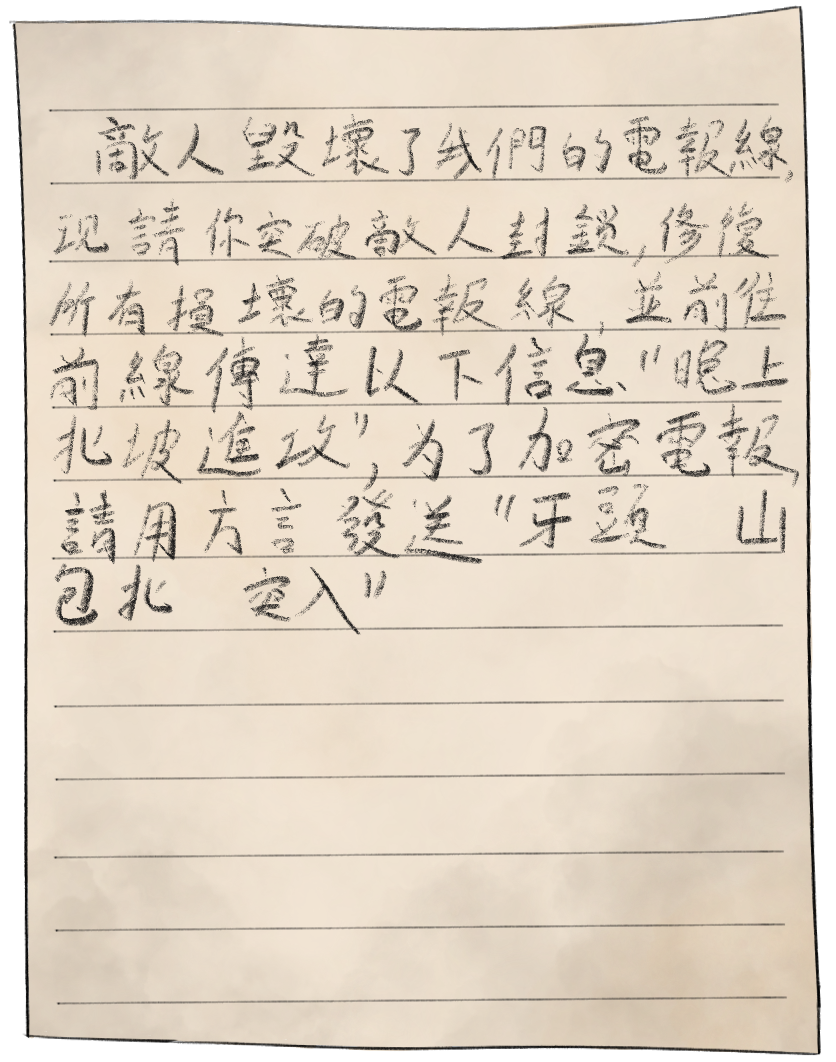 敵人毀壞了我們的電報線,
现請你突破敵人封鎖,修復
所有損壞的電報線,並前往
前線傳達以下信息"晚上
北坡進攻",为了加密電報,
請用方言發送"牙頭 山
包北 突入"